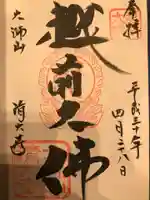 奉拝
平成三十年
四月二十八日
越前大佛
大師山
清大寺